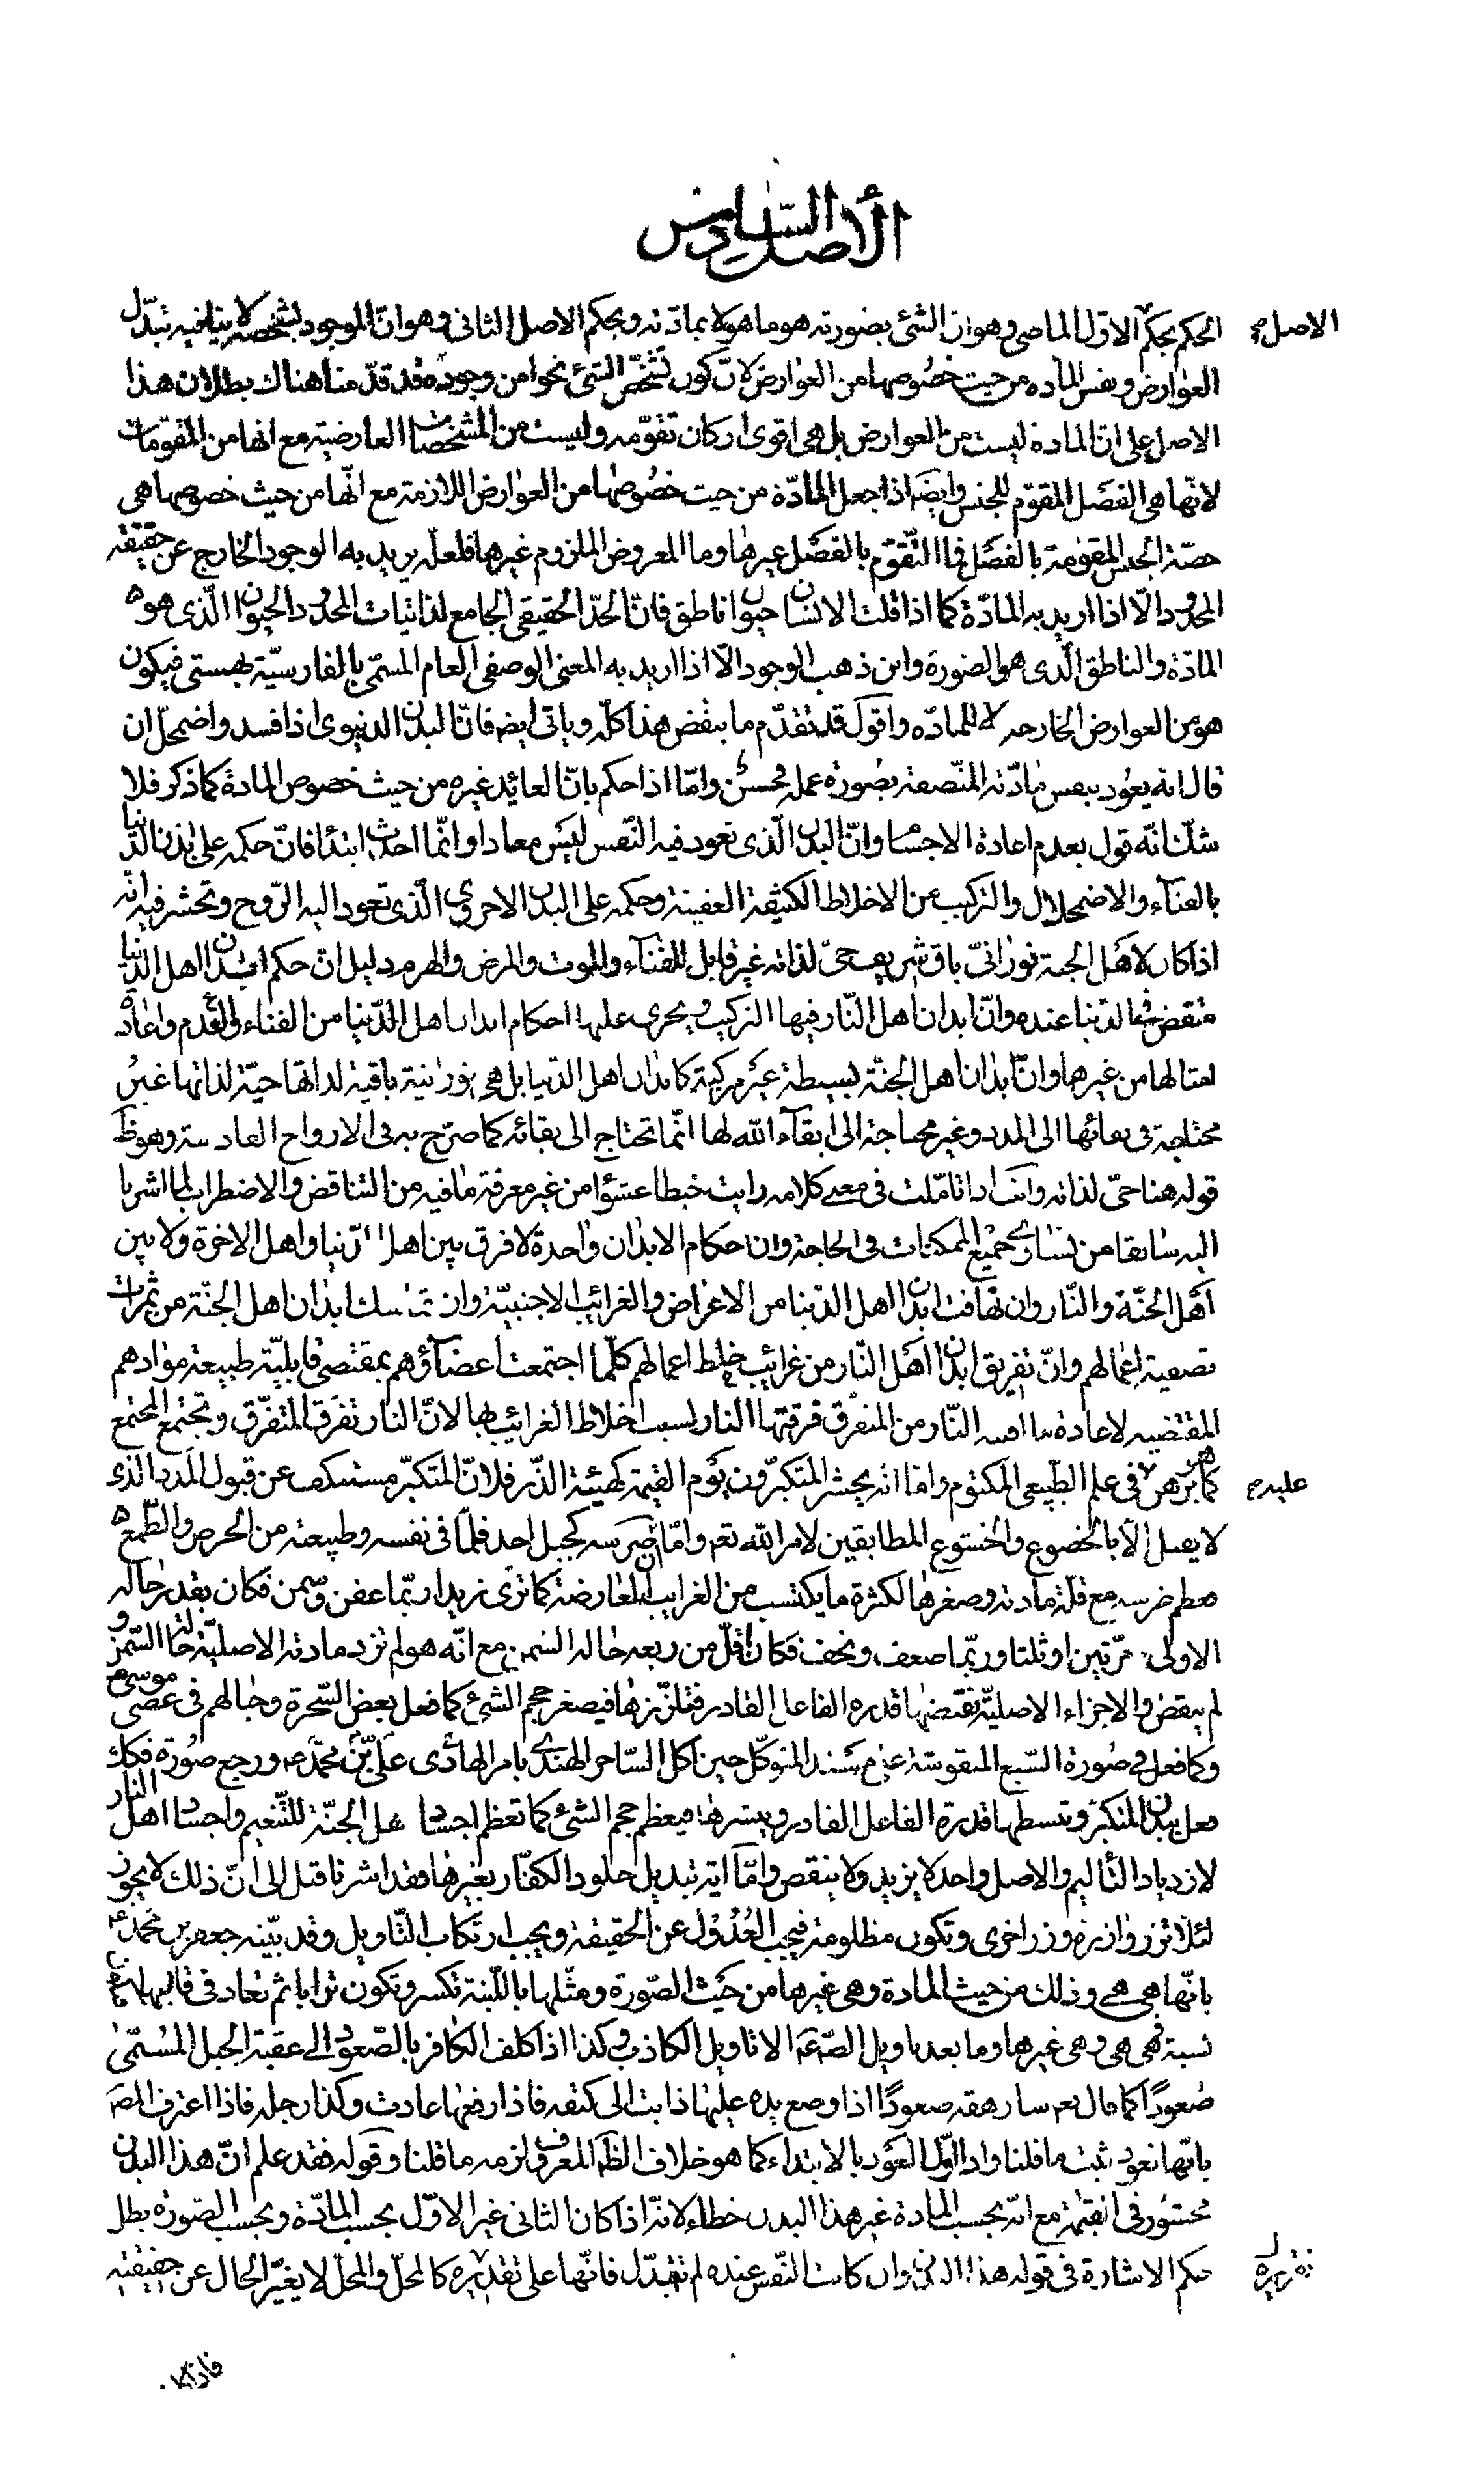 الأصل السادس
الحكم بحكم الاوّل الماضى وهو انّ الشئ بصورته هو ما هو لا بمادّته وبحكم الاصل الثانى وهو انّ الموجود لشخصه لا ينافيه تبدّل
الاصل صح
العوارض ونفس المادّه من حيث خصُوصها من العوارض لانّ كون تشخّص الشئ نحوا من وجوده فقد قدّمنا هناك بطلان هذا
الاصل على انّ المادة ليست من العوارض بل هى اقوى اركان تقوّمه وليست من المشخصات العارضية مع انها من المقوّمات
لانّها هى الفصَل المقوّم للجنس وايضَا اذا جعل المادّة من حيث خصُوصها من العوارض اللازمة مع انّها من حيث خصوصها هى
حصّة الجنس المقوّمة بالفصَل فما المتقوّم بالفصَل غيرها وما المعروض الملزوم غيرها فلعلّه يريد به الوجود الخارج عن حقيقة
المحدود الّا اذا اريد به المادّة كما اذا قلت الانسان حيوان ناطق فانّ الحدّ الحقيقى الجامع لذاتيات المحدود الحيوان الّذى هو
المادّة والناطق الّذى هو الصّورة واين ذهب الوجود الّا اذا اريد به المعنى الوصفى العام المسمّى بالفارسيّة بهستى فيكون
هو من العوارض الخارجه لا للمادّه واقول قد تقدّم ما ينقض هذا كلّه وياتى ايضا فانّ البدن الدنيوى اذا فسد واضمحلّ ان
قال انه يعُود بنفس مادّته المتّصفة بصُورة عمله فحسنٌ وامّا اذا حكم بانّ العائد غيره من حيث خصوص المادة كما ذكر فلا
شكّ انّه قول بعدم اعادة الاجسام وانّ البدن الّذى تعود فيه النّفس ليس معادا وانّما احدث ابتداء فانّ حكمه على بدن الدّنيا
بالفنآء والاضمحلال والتركيب من الاخلاط الكثيفة العفينة وحكمه على البدن الاخروى الّذى تعود اليه الرّوح وتحشر فيه انّه
اذا كان لاهل الجنة نورانىّ باق شريف حىّ لذاته غير قابل للفنآء والموت والمرض والهرم دليل انّ حكم ابدان اهل الدّنيا
منقض فى الدنيا عنده وانّ ابدان اهل النّار فيها التركيب ويجرى عليها احكام ابدان اهل الدّنيا من الفناء والعدم واعادة
امثالها من غيرهما وانّ ابدان اهل الجنّة بسيطة غير مركبة كابدان اهل الدّنيا بل هى نورٰنية باقية لذاتها حيّة لذاتها غير
محتاجة فى بقائها الى المدد وغير محتاجة الى ابقآء الله لها انّما تحتاج الى بقائه كما صرّح به فى الارواح القادسة وهو ظَ
قوله هنا حىّ لذاته وانت اذا تامّلت فى معنى كلامه رايت خبطا عشوا من غير معرفة ما فيه من التناقض والاضطراب لما اشرنا
اليه سابقا من تساوى جميع الممكنات فى الحاجة وان احكام الابدان واحدة لا فرق بين اهل الدّنيا واهل الاخرة ولا بين
اهل الجنّة والنّار وان تهافت ابدان اهل الدّنيا من الاعراض والغرائب الاجنبيّة وان تماسك ابدان اهل الجنّة من ثمرات
تصفية اعمالهم وانّ تفريق ابدان اهل النّار من غرائب خلط اعمالهم كلّما اجتمعت اعضآؤهم بمقتضى قابليّة طبيعة موادهم
المقتضيه لاعادة ما افنته النّار من المتفرّق فرقتها النار بسبب اخلاط الغرائب بها لانّ النار تفرق المتفرّق وتجمع المجتمع
كما برهن فى علم الطّبيعى المكتوم وامّا انّه يحشر المتكبّرون يوم القيمة كهيئة الذّر فلانّ المتكبّر مستنكف عن قبول المدد الذى
عليه صح
لا يصل الّا بالخضوع والخشوع المطابقين لامر الله تعم وامّا ان ضرسه كجبل احد فلما فى نفسه وطبيعته من الحرص والطّمع
معظم ضرسه مع قلّة مادته وصغرها لكثرة ما يكتسب من الغرايب المعارضة كما ترى زيدا ربّما عفن وسمن فكان بقدر حاله
الاولى مرّتين او ثلثا وربّما ضعف ونحف فكان اقلّ من ربع حاله السّمن مع انّه هو لم تزد مادته الاصليّة حالة السّمن و
لم ينقض والاجزاء الاصليّة تقبضها قدرة الفاعل القادر فتلزّزها فيصغر حجم الشئ كما فعل بعض السّحرة وحبالهم فى عصى موسى
وكما فعل فى صُورة السّبع المنقوشة على مسند المتوكّل حين اكل السّاحر الهندى بامر الهادى علىّ بن محمّد ع ورجع صُورة فكك
فعل ببدن المتكبّر وتبسطها قدرة الفاعل القادر وينشرها فيعظم حجم الشئ كما تعظم اجساد اهل الجنّة للتّنعيم واجساد اهل النار
لازدياد التّأليم والاصل واحد لا يزيد ولا ينقص وامّا اية تبديل جلود الكفّار بغيرها فقد اشرنا قبل الى انّ ذلك لا يجوز
لئلّا تزر وازرة وزر اخرى وتكون مظلومة فيجب العُدُول عن الحقيقة ويجب ارتكاب التّاويل وقد بيّنه جعفر بن محمّد ع
بانّها هى هى وذلك من حيث المادة وهى غيرها من حيث الصّورة ومثّلها باللّبنة تكسر وتكون ترابا ثم تعاد فى قالبها
نسبة فهى هى وهى غيرها وما بعد تاويل الصّ ع الا تاويل الكاذب وكذا اذا كلف الكافر بالصّعود الى عقبة الجبل المُسمّى
صُعودًا كما قال تعم سارهقه صعودًا اذا وضع يده عليها ذابت الى كتفه فاذا رفعها عادت وكذا رجله فاذا اعترف المصَ
بانّها تعود ثبت ما قلنا واذا اوّل العَود بالابتداء كما هو خلاف الظّ المعروف لزمه ما قلنا وقوله فقد علم انّ هذا البدن
محشور فى القيٰمة مع انّه بحسب المادة غير هذا البدن خطاء لانّه اذا كان الثانى غير الاوّل بحسب المادّة وبحسب الصّورة بطل
حكم الاشارة فى قوله هذا البدن وان كانت النّفس عنده لم تتبدّل فانّها على تقديره كالمحلّ والمحلّ لا يغيّر الحال عن حقيقته